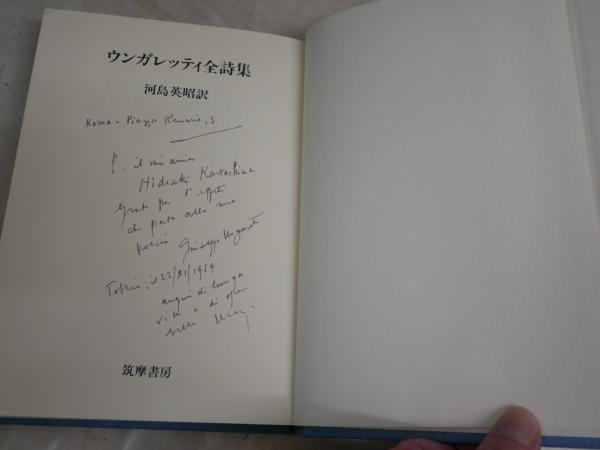 ウンガレッティ全詩集
河島英昭訳
Roma - Piazza Remuria, 3
il mio amico
Hideaki Kawashima
grato per l'affetto
che porta alla mia
poesia Giuseppe Ungaretti
Tokio, il 22/XI/1959
auguri di lunga
vita e di
筑摩書房